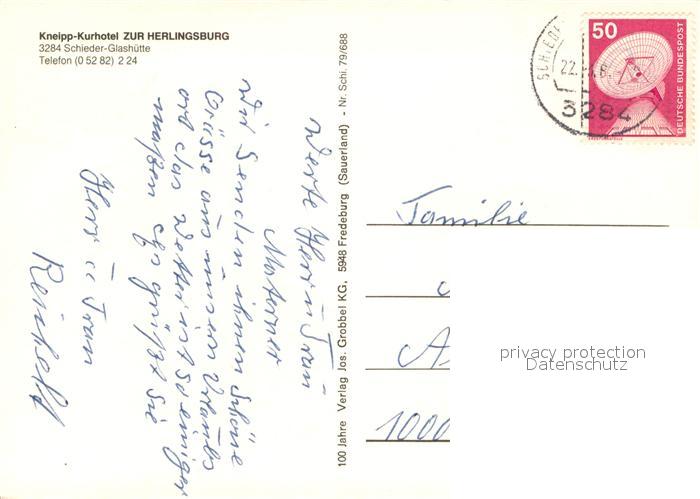 Kneipp-Kurhotel ZUR HERLINGSBURG
3284 Schieder-Glashütte
Telefon (0 52 82) 2 24
werte Herr u Frau
Materner
wir senden ihnen schöne
Grüsse aus unsern Urlaubs
ort das Wetter ist so einiger
maßen es grüßt sie
Herr u Frau
Reichelt
100 Jahre Verlag Jos. Grobbel KG, 5948 Fredeburg (Sauerland) - Nr. Schi. 79/688
50
DEUTSCHE BUNDESPOST
SCHIED
22.
3284
Familie
A
1000
privacy protection
Datenschutz